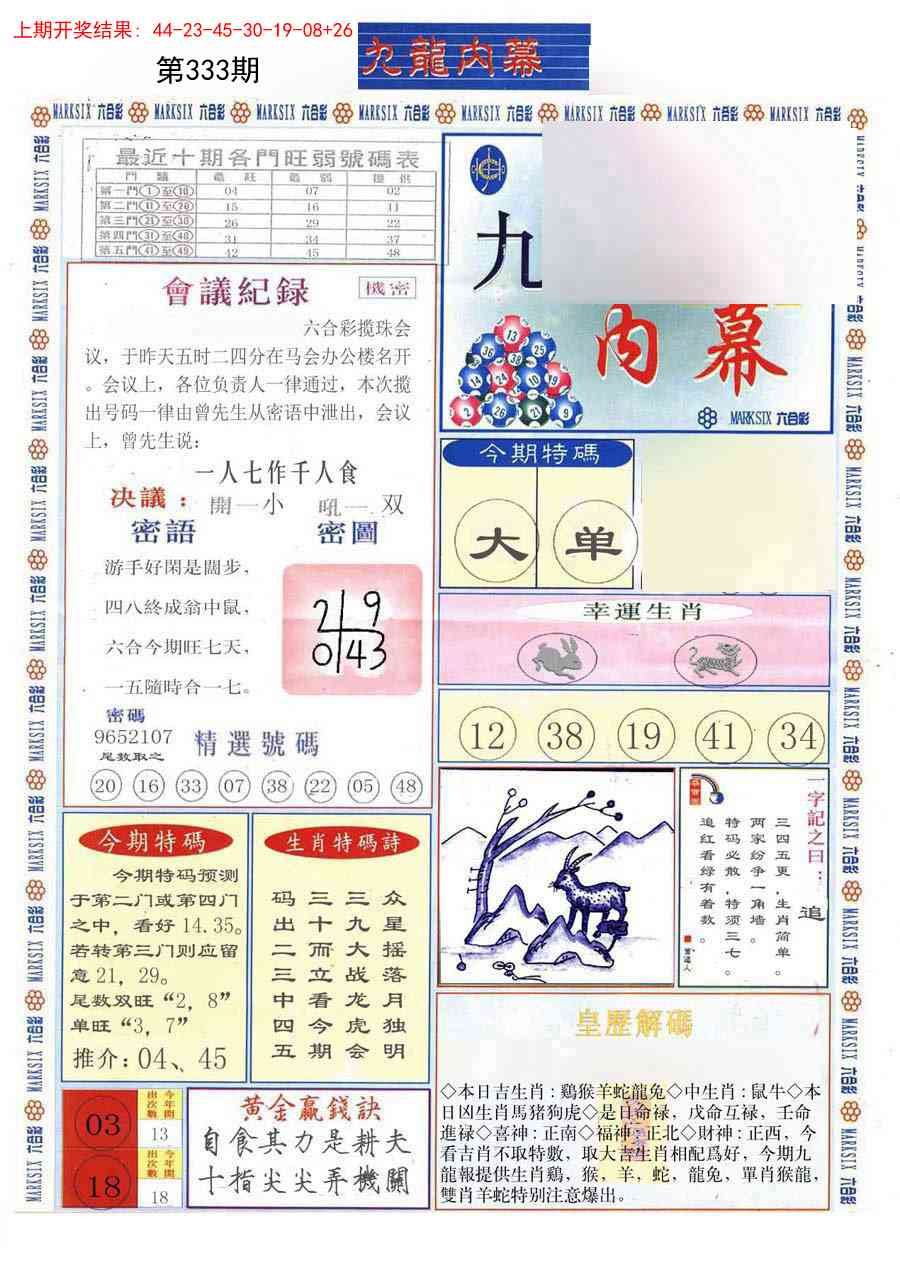 上期开奖结果：44-23-45-30-19-08+26
第333期
九龍内幕
MARKSIX 六合彩 MARKSIX 六合彩 MARKSIX 六合彩 MARKSIX 六合彩 MARKSIX 六合彩 MARKSIX 六合彩 MARKSIX 六合彩 MARKSIX 六合彩
最近十期各門旺弱號碼表
第一門①至⑩ 04 07 02
第二門⑪至⑳ 15 16 11
第三門㉑至㉚ 26 29 22
第四門㉛至㊵ 31 34 37
第五門㊶至㊾ 42 45 48
九
内幕
13
36 38 25
14 24 10 19
2 26 21 9
MARKSIX 六合彩
會議紀録
機密
六合彩揽珠会
议，于昨天五时二四分在马会办公楼名开
。会议上，各位负责人一律通过，本次揽
出号码一律由曾先生从密语中泄出，会议
上，曾先生说：
一人七作千人食
决議：開一小 吼一双
密語
密圖
游手好閑是闊步，
四八終成翁中鼠，
六合今期旺七天，
一五隨時合一七。
2 9
0 43
密碼
9652107
尾数取之
精選號碼
20 16 33 07 38 22 05 48
今期特碼
大 单
幸運生肖
12 38 19 41 34
今期特碼
今期特码预测
于第二门或第四门
之中，看好14.35。
若转第三门则应留
意21，29。
尾数双旺“2，8”
单旺“3，7”
推介：04、45
生肖特碼詩
码三三众
出十九星
二而大摇
三立战落
中看龙月
四今虎独
五期会明
一字記之曰：追
三四五更，生肖简单。
两家纷争一角墙。
特码必散，特须三七。
追红看绿有着数。
皇歷解碼
◇本日吉生肖：鷄猴羊蛇龍兔◇中生肖：鼠牛◇本
日凶生肖馬猪狗虎◇是日命禄，戌命互禄，壬命
進禄◇喜神：正南◇福神：正北◇財神：正西，今
看吉肖不取特數，取大吉生肖相配爲好，今期九
龍報提供生肖鷄，猴，羊，蛇，龍兔，單肖猴龍，
雙肖羊蛇特别注意爆出。
03
今年開出次數
13
18
今年開出次數
18
黄金赢錢訣
自食其力是耕夫
十指尖尖弄機關